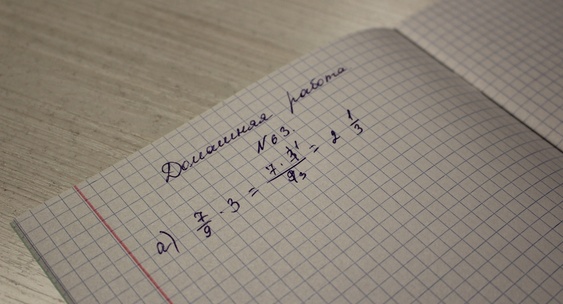 Домашняя работа
№63.
а) 7/9 · 3 = 7·3¹/9₃ = 2 1/3